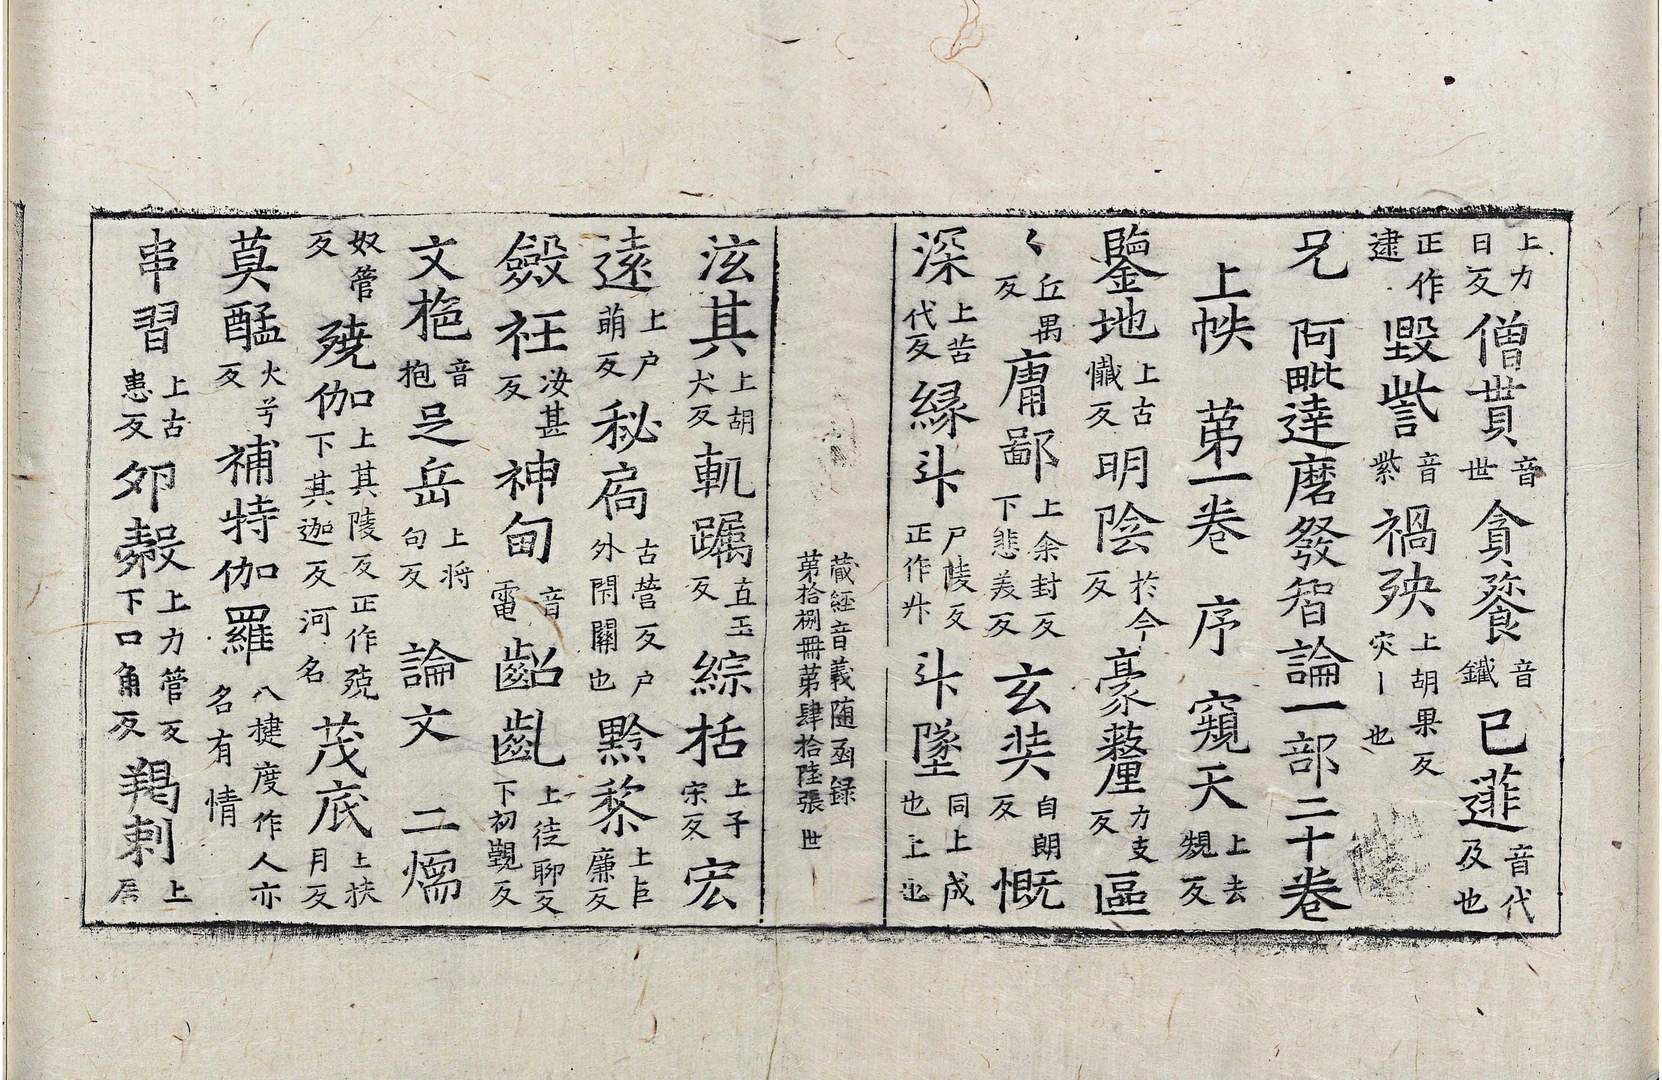 上力日反僧貰音世貪餮音鐵已𨗴音代及也
正作逮毀訾音紫禍殃上胡果反灾丨也
兄 阿毗達磨發智論一部二十卷
上帙 第一卷 序 窺天上去規反
鑒地上古懺反明陰於今反豪氂力支反區
〻丘禺反庸鄙上余封反下悲美反玄奘自朗反慨
深上苦代反縁斗尸陵反正作升斗墜同上成也
藏經音義随函録
第拾捌冊第肆拾陸張 世
泫其上胡犬反軌躅直玉反綜括上子宋反宏
遠上戶萌反秘扃古營反戶外閉關也黔黎上巨廉反
斂衽汝甚反神甸音電齠齓上徒聊反下初覲反
文袍音抱足岳上将句反 論文 二煗
奴管反 殑伽上其陵反正作殑下其迦反河名茂底上扶月反
莫醯火兮反補特伽羅八揵度作人亦名有情
串習上古患反夘㲉上力管反下口角反羯剌上居